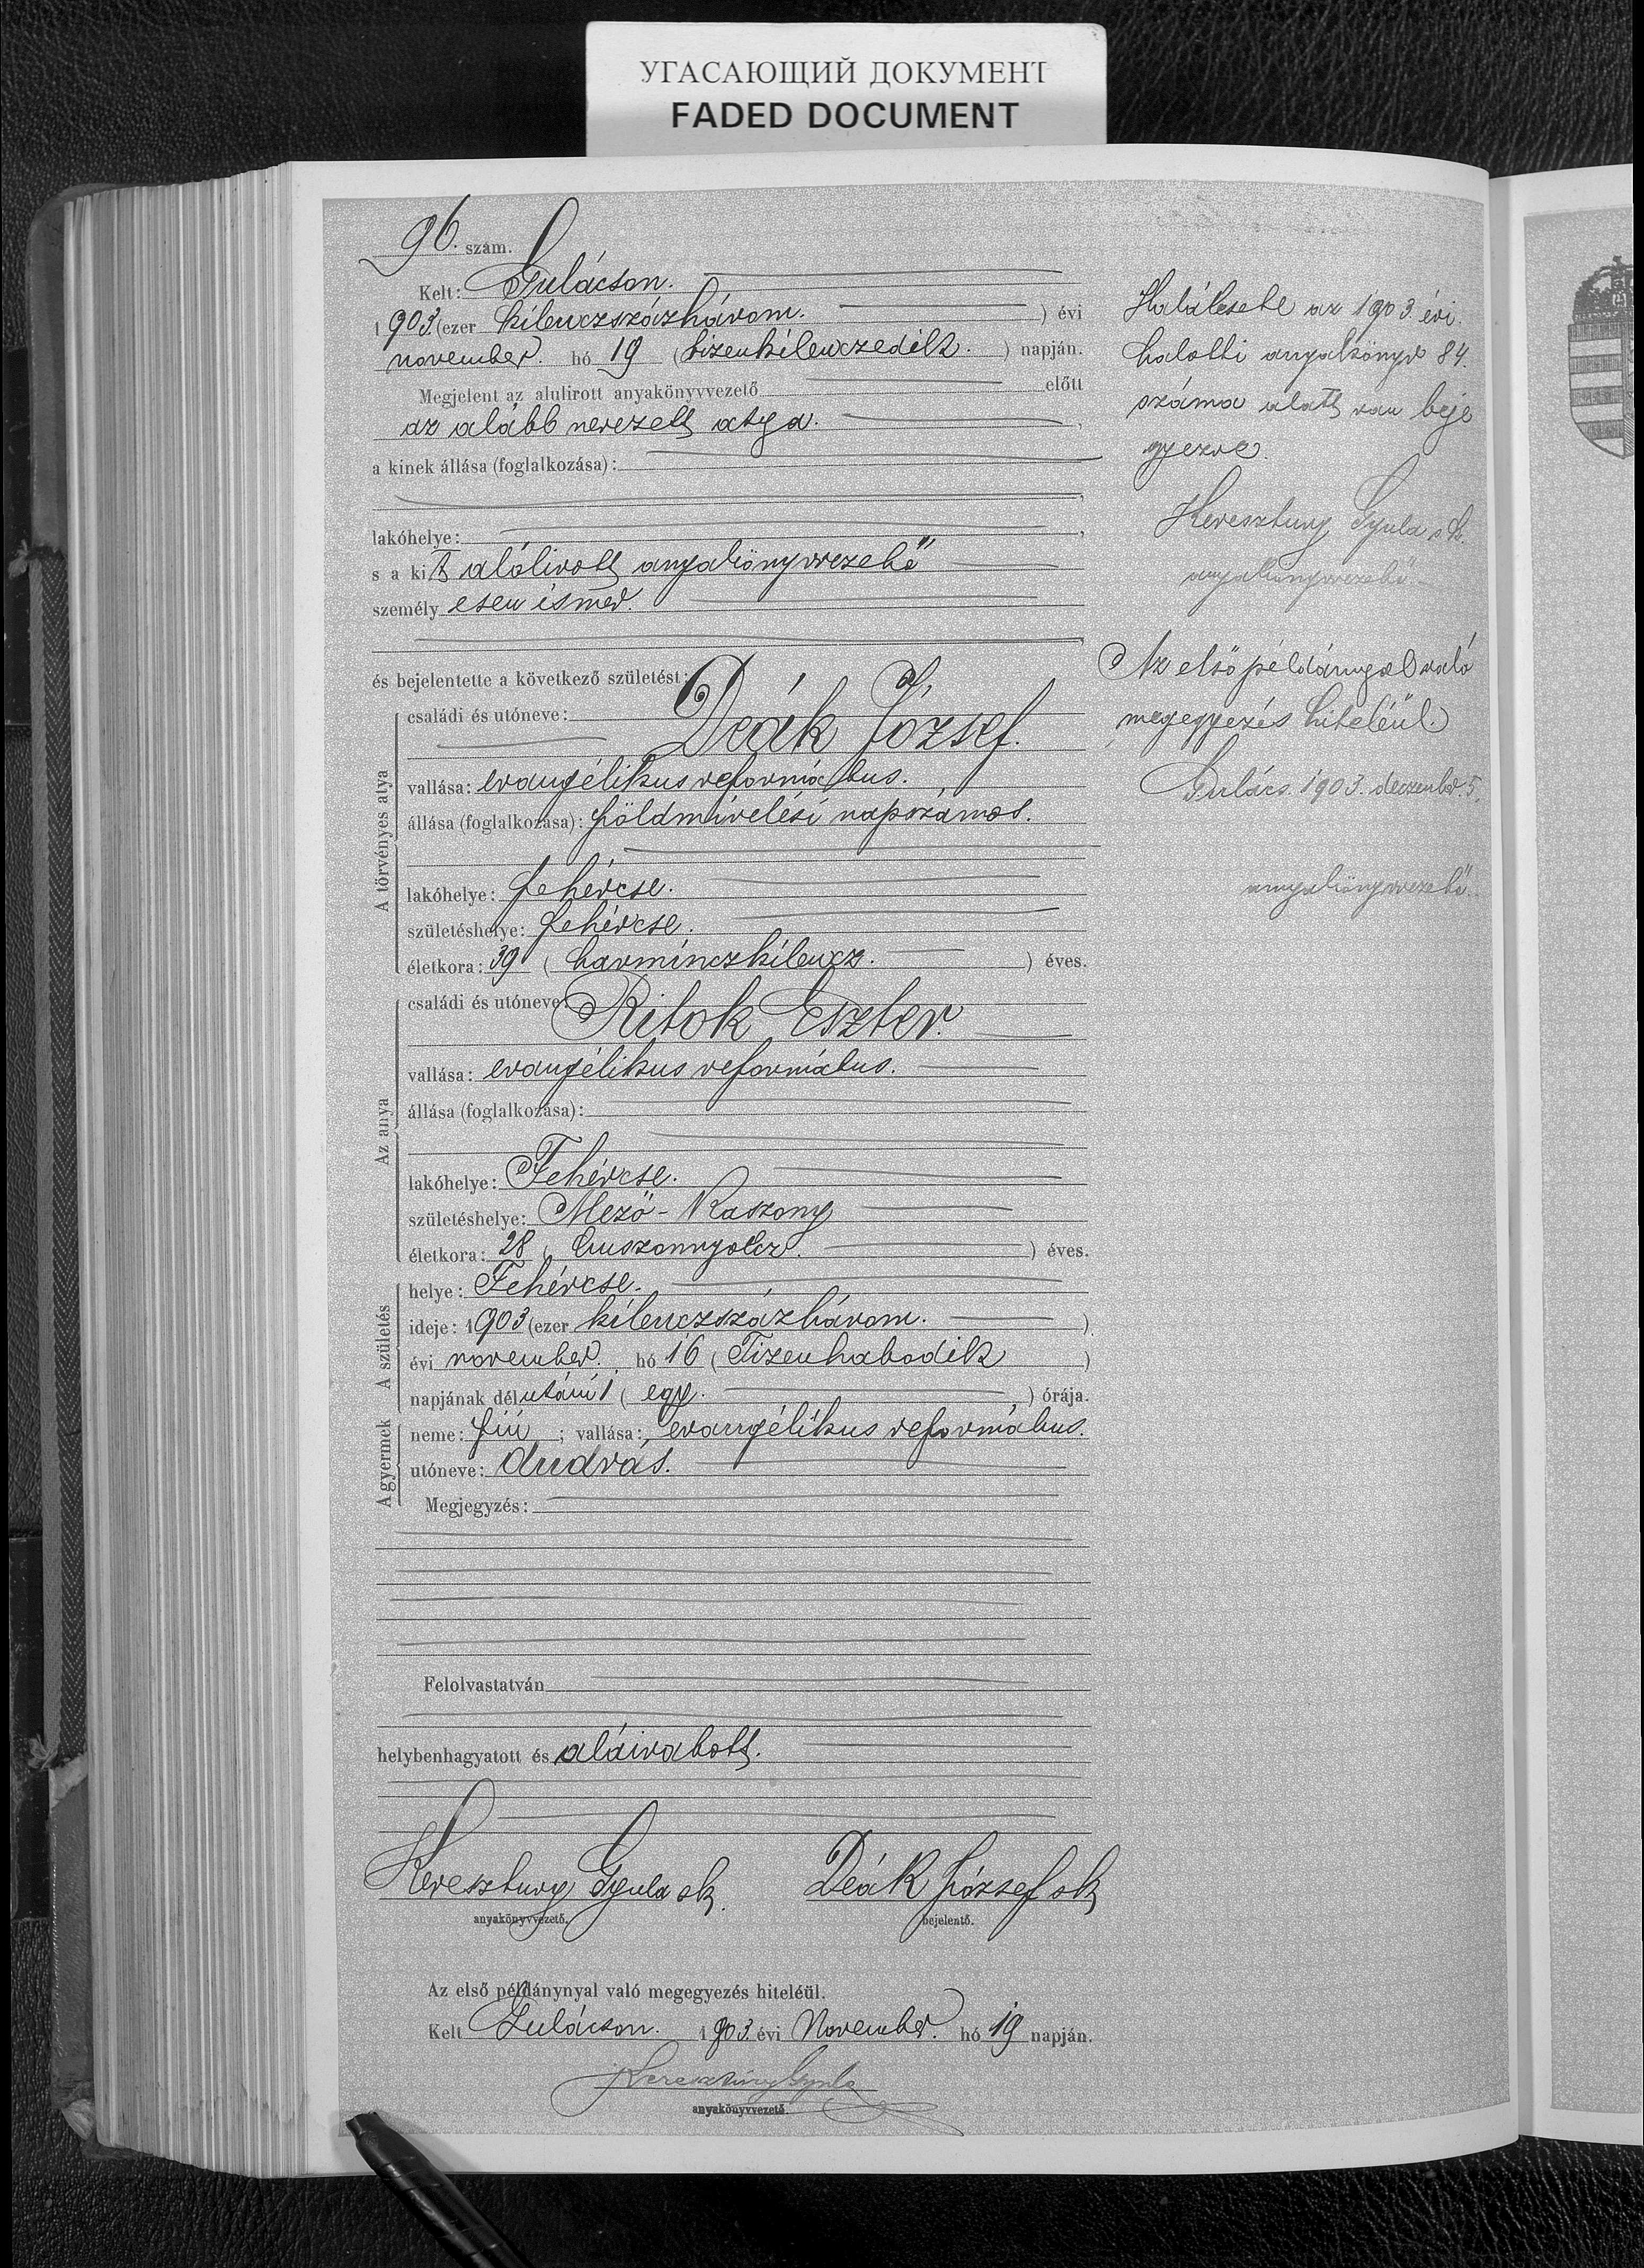 УГАСАЮЩИЙ ДОКУМЕНТ
FADED DOCUMENT
96. szám.
Kelt: Gulácson.
1903. (ezer kilenczszázhárom. ) évi
november. hó 19 (tizenkilenczedik. ) napján.
Megjelent az alulirott anyakönyvvezető előtt
az alább nevezett atya. ,
a kinek állása (foglalkozása):
,
lakóhelye: ,
s a kit alólirott anyakönyvvezető
személyesen ismer.
;
és bejelentette a következő születést:
A törvényes atya
családi és utóneve:
Deák József.
vallása: evangélikus református.
állása (foglalkozása): földmívelési napszámos.
lakóhelye: Fehércse.
születéshelye: Fehércse.
életkora: 39 ( harminczkilencz. ) éves.
Az anya
családi és utóneve:
Ritok Eszter.
vallása: evangélikus református.
állása (foglalkozása):
lakóhelye: Fehércse.
születéshelye: Mező-Kaszony
életkora: 28 ( huszonnyolcz. ) éves.
A születés
helye: Fehércse.
ideje: 1903 (ezer kilenczszázhárom. )
évi november. hó 16 ( Tizenhatodik )
napjának délutáni 1 ( egy. ) órája.
A gyermek
neme: fiú ; vallása: evangélikus református.
utóneve: András.
Megjegyzés:
Felolvastatván
helybenhagyatott és aláiratott.
Keresztury Gyula sk. Deák József sk
anyakönyvvezető. bejelentő.
Az első példánynyal való megegyezés hiteléül.
Kelt Gulácson. 1903. évi November. hó 19 napján.
Keresztury Gyula
anyakönyvvezető.
Halálesete az 1903. évi.
halotti anyakönyv 84.
száma alatt van beje
gyezve.
Keresztury Gyula sk.
anyakönyvvezető.
Az első példánynyal való
megegyezés hiteléül.
Gulács. 1903. deczember 5.
anyakönyvvezető.